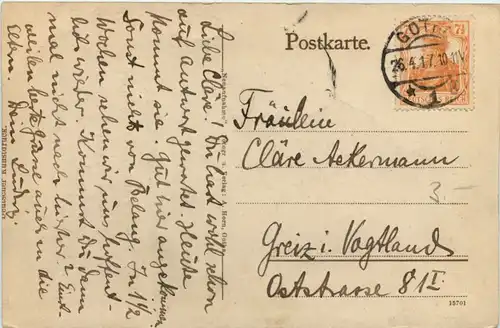 Postkarte.
GOTHA
26.4.17. 10-11V
7½
Liebe Cläre! Du hast wohl schon
auf Antwort gewartet. Heute
kommt sie. Gut hier angekommen
Sonst nichts von Belang. In 1½
Wochen sehen wir uns hoffent-
lich wieder. Kommst Du denn
mal nicht nach hier
die besten Grüße auch an die
Eltern. Dein
Fräulein
Cläre Ackermann
3-
Greiz i. Vogtland
Oststrasse 81 I
15701